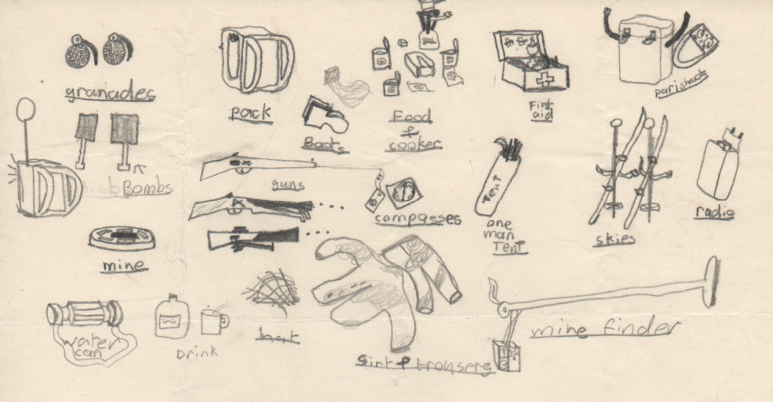 granades
pack
Boots
Food
&
cooker
First
aid
parishook
bomb Bombs
guns
compasses
Tent
one
man
Tent
skies
radio
mine
water
can
Drink
Sirt & trousers
mine finder